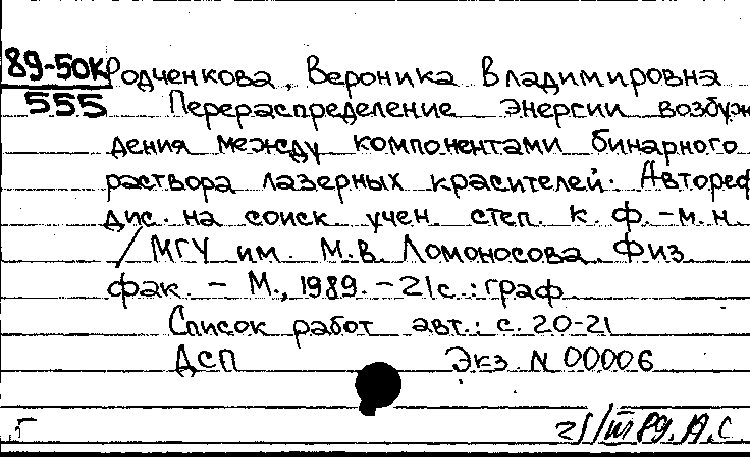 89-50К Родченкова, Вероника Владимировна
555 Перераспределение энергии возбуж
дения между компонентами бинарного
раствора лазерных красителей. Автореф
дис. на соиск учен. степ. к. ф.-м.н.
/ МГУ им. М.В. Ломоносова. Физ.
фак. - М., 1989. - 21с.: граф
Список работ авт.: с. 20-21
ДСП Экз N 00006
5